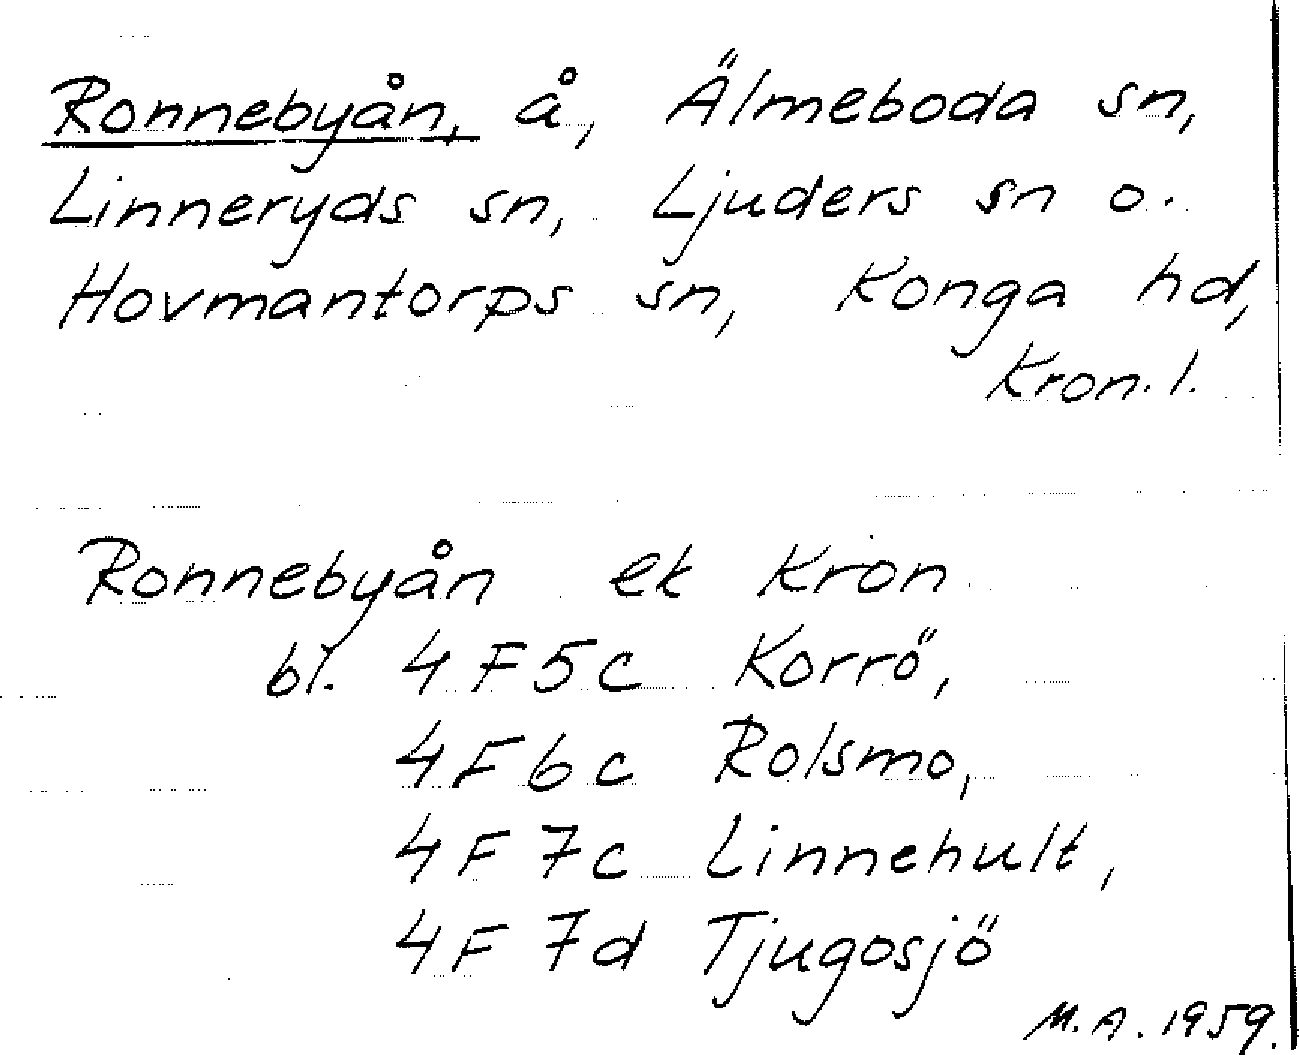 Ronnebyån, å, Älmeboda sn,
Linneryds sn, Ljuders sn o.
Hovmantorps sn, Konga hd,
Kron. l.
Ronnebyån ek Kron
bl. 4F5c Korrö,
4F6c Rolsmo,
4F7c Linnehult,
4F7d Tjugosjö
M.A. 1959.